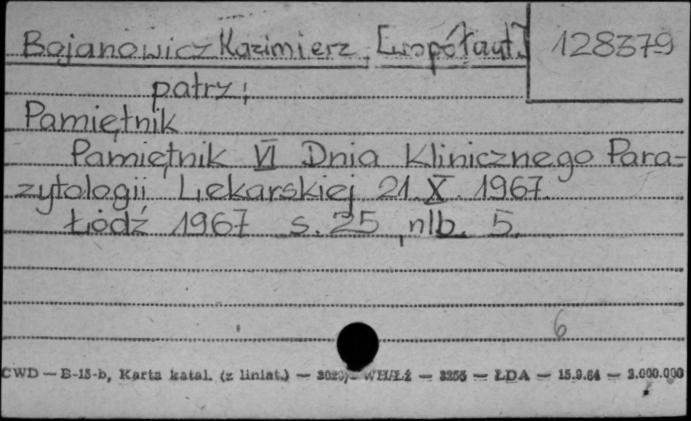 Bojanowicz Kazimierz, [współaut.] 128379
patrz:
Pamiętnik
Pamiętnik VI Dnia Klinicznego Para-
zytologii Lekarskiej 21.X.1967.
Łódź 1967 s. 25, nlb. 5.
6
CWD — B-15-b, Karta katal. (z liniat.) — WH/Łż — 3256 — ŁDA — 15.9.64 — 3.000.000